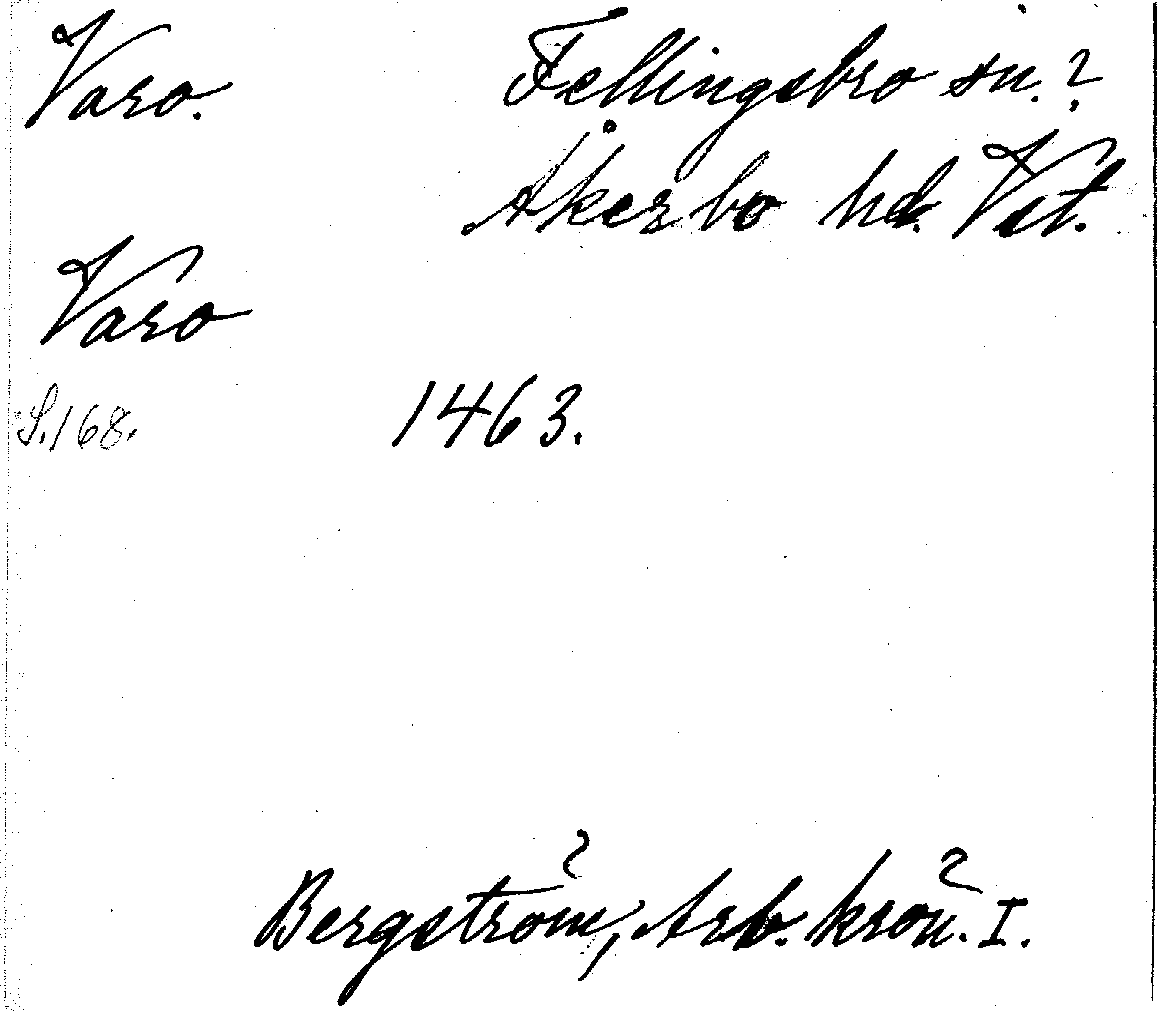 Varo. Fellingsbro sn.?
Åkerbo hd. Vst.
Varo
S. 168. 1463.
Bergström, Arb. krön. I.